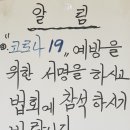 알 림
"코로나 19" 예방을
위한 서명을 하시고
법회에 참석 하시기
바랍니다